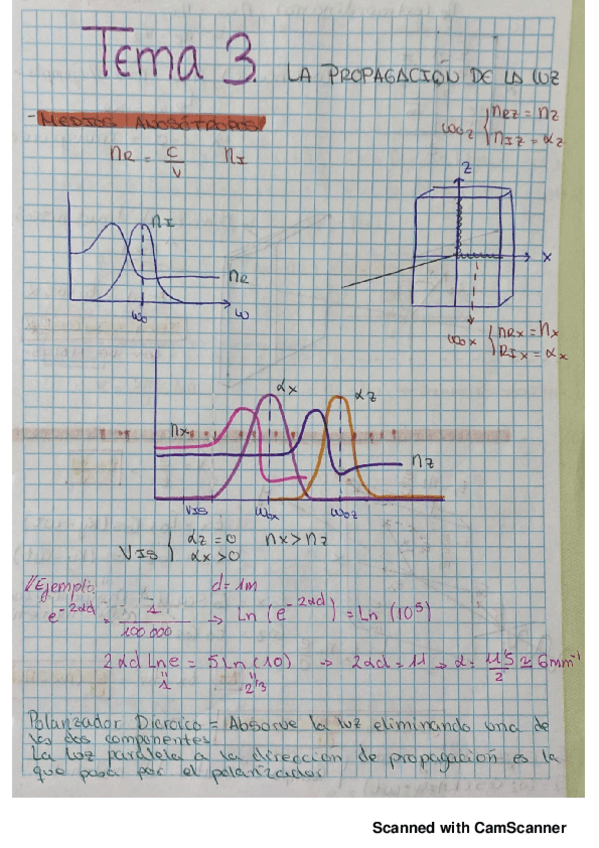 Tema 3. LA PROPAGACIÓN DE LA LUZ
- MEDIOS ANOSÓTROPOS/
ω0z { nRz = nz
nIz = αz
nR = c/v nI
z
nI
nR
ω0
ω
x
ω0x { nRx = nx
RIx = αx
αx
αz
nx
nz
VIS
ω0x
ω0z
VIS { αz = 0 nx > nz
αx > 0
//Ejemplo: d = 1m
e^-2αd = 1/100 000 → Ln (e^-2αd) = Ln (10^5)
2αd Ln e = 5Ln (10) → 2αd = 11 → α = 11'5/2 ≅ 6mm^-1
1 2'3
Polarizador Dicroico = Absorve la luz eliminando una de
las dos componentes.
La luz paralela a la dirección de propagación es la
que pasa por el polarizador
Scanned with CamScanner